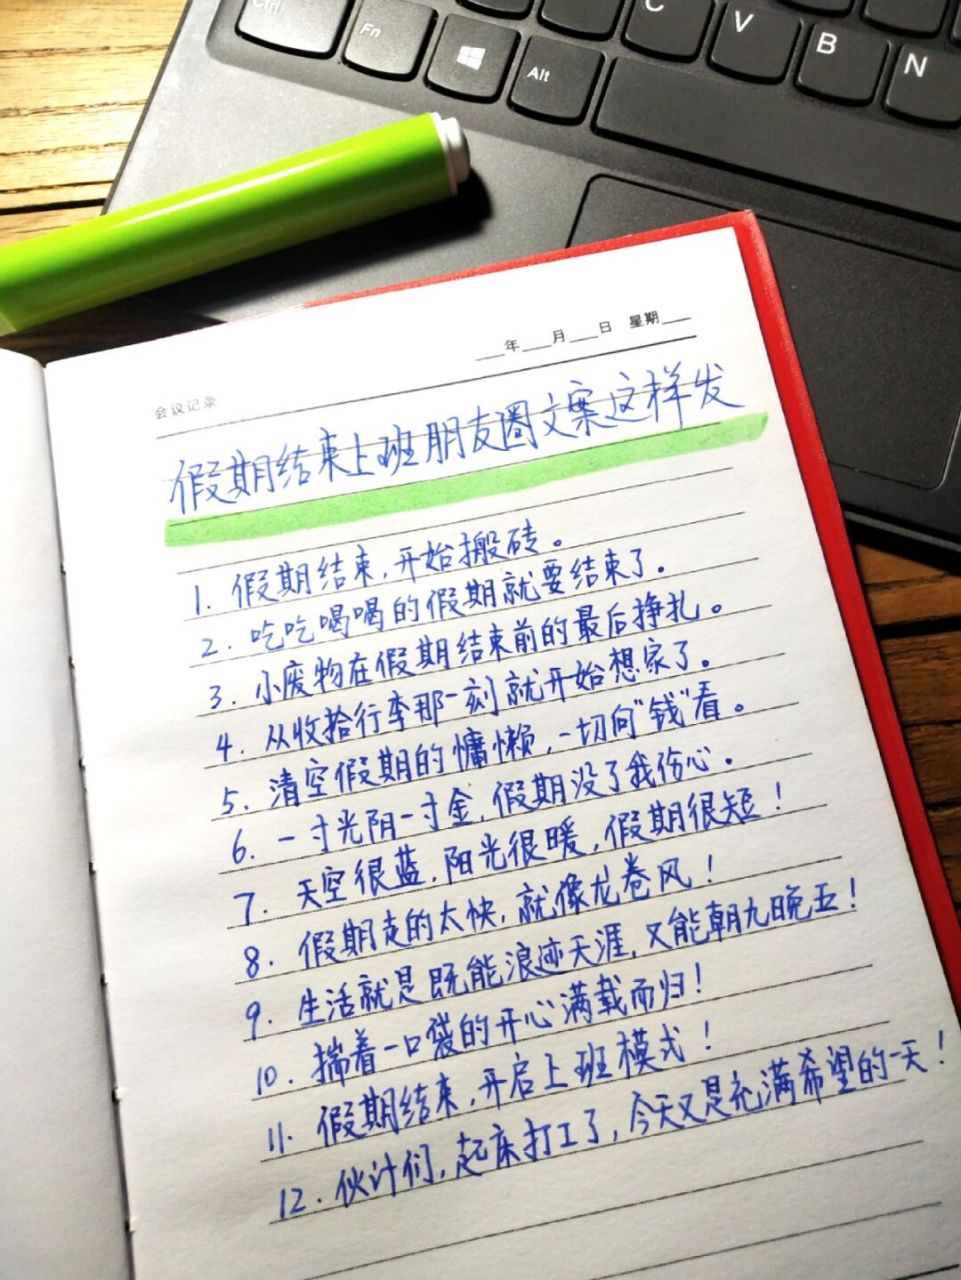 Ctrl
Fn
Alt
C
V
B
N
___年___月___日 星期___
会议记录
假期结束上班朋友圈文案这样发
1. 假期结束,开始搬砖。
2. 吃吃喝喝的假期就要结束了。
3. 小废物在假期结束前的最后挣扎。
4. 从收拾行李那一刻就开始想家了。
5. 清空假期的慵懒,一切向“钱”看。
6. 一寸光阴一寸金,假期没了我伤心。
7. 天空很蓝,阳光很暖,假期很短!
8. 假期走的太快,就像龙卷风!
9. 生活就是既能浪迹天涯,又能朝九晚五!
10. 揣着一口袋的开心满载而归!
11. 假期结束,开启上班模式!
12. 伙计们,起床打工了,今天又是充满希望的一天!